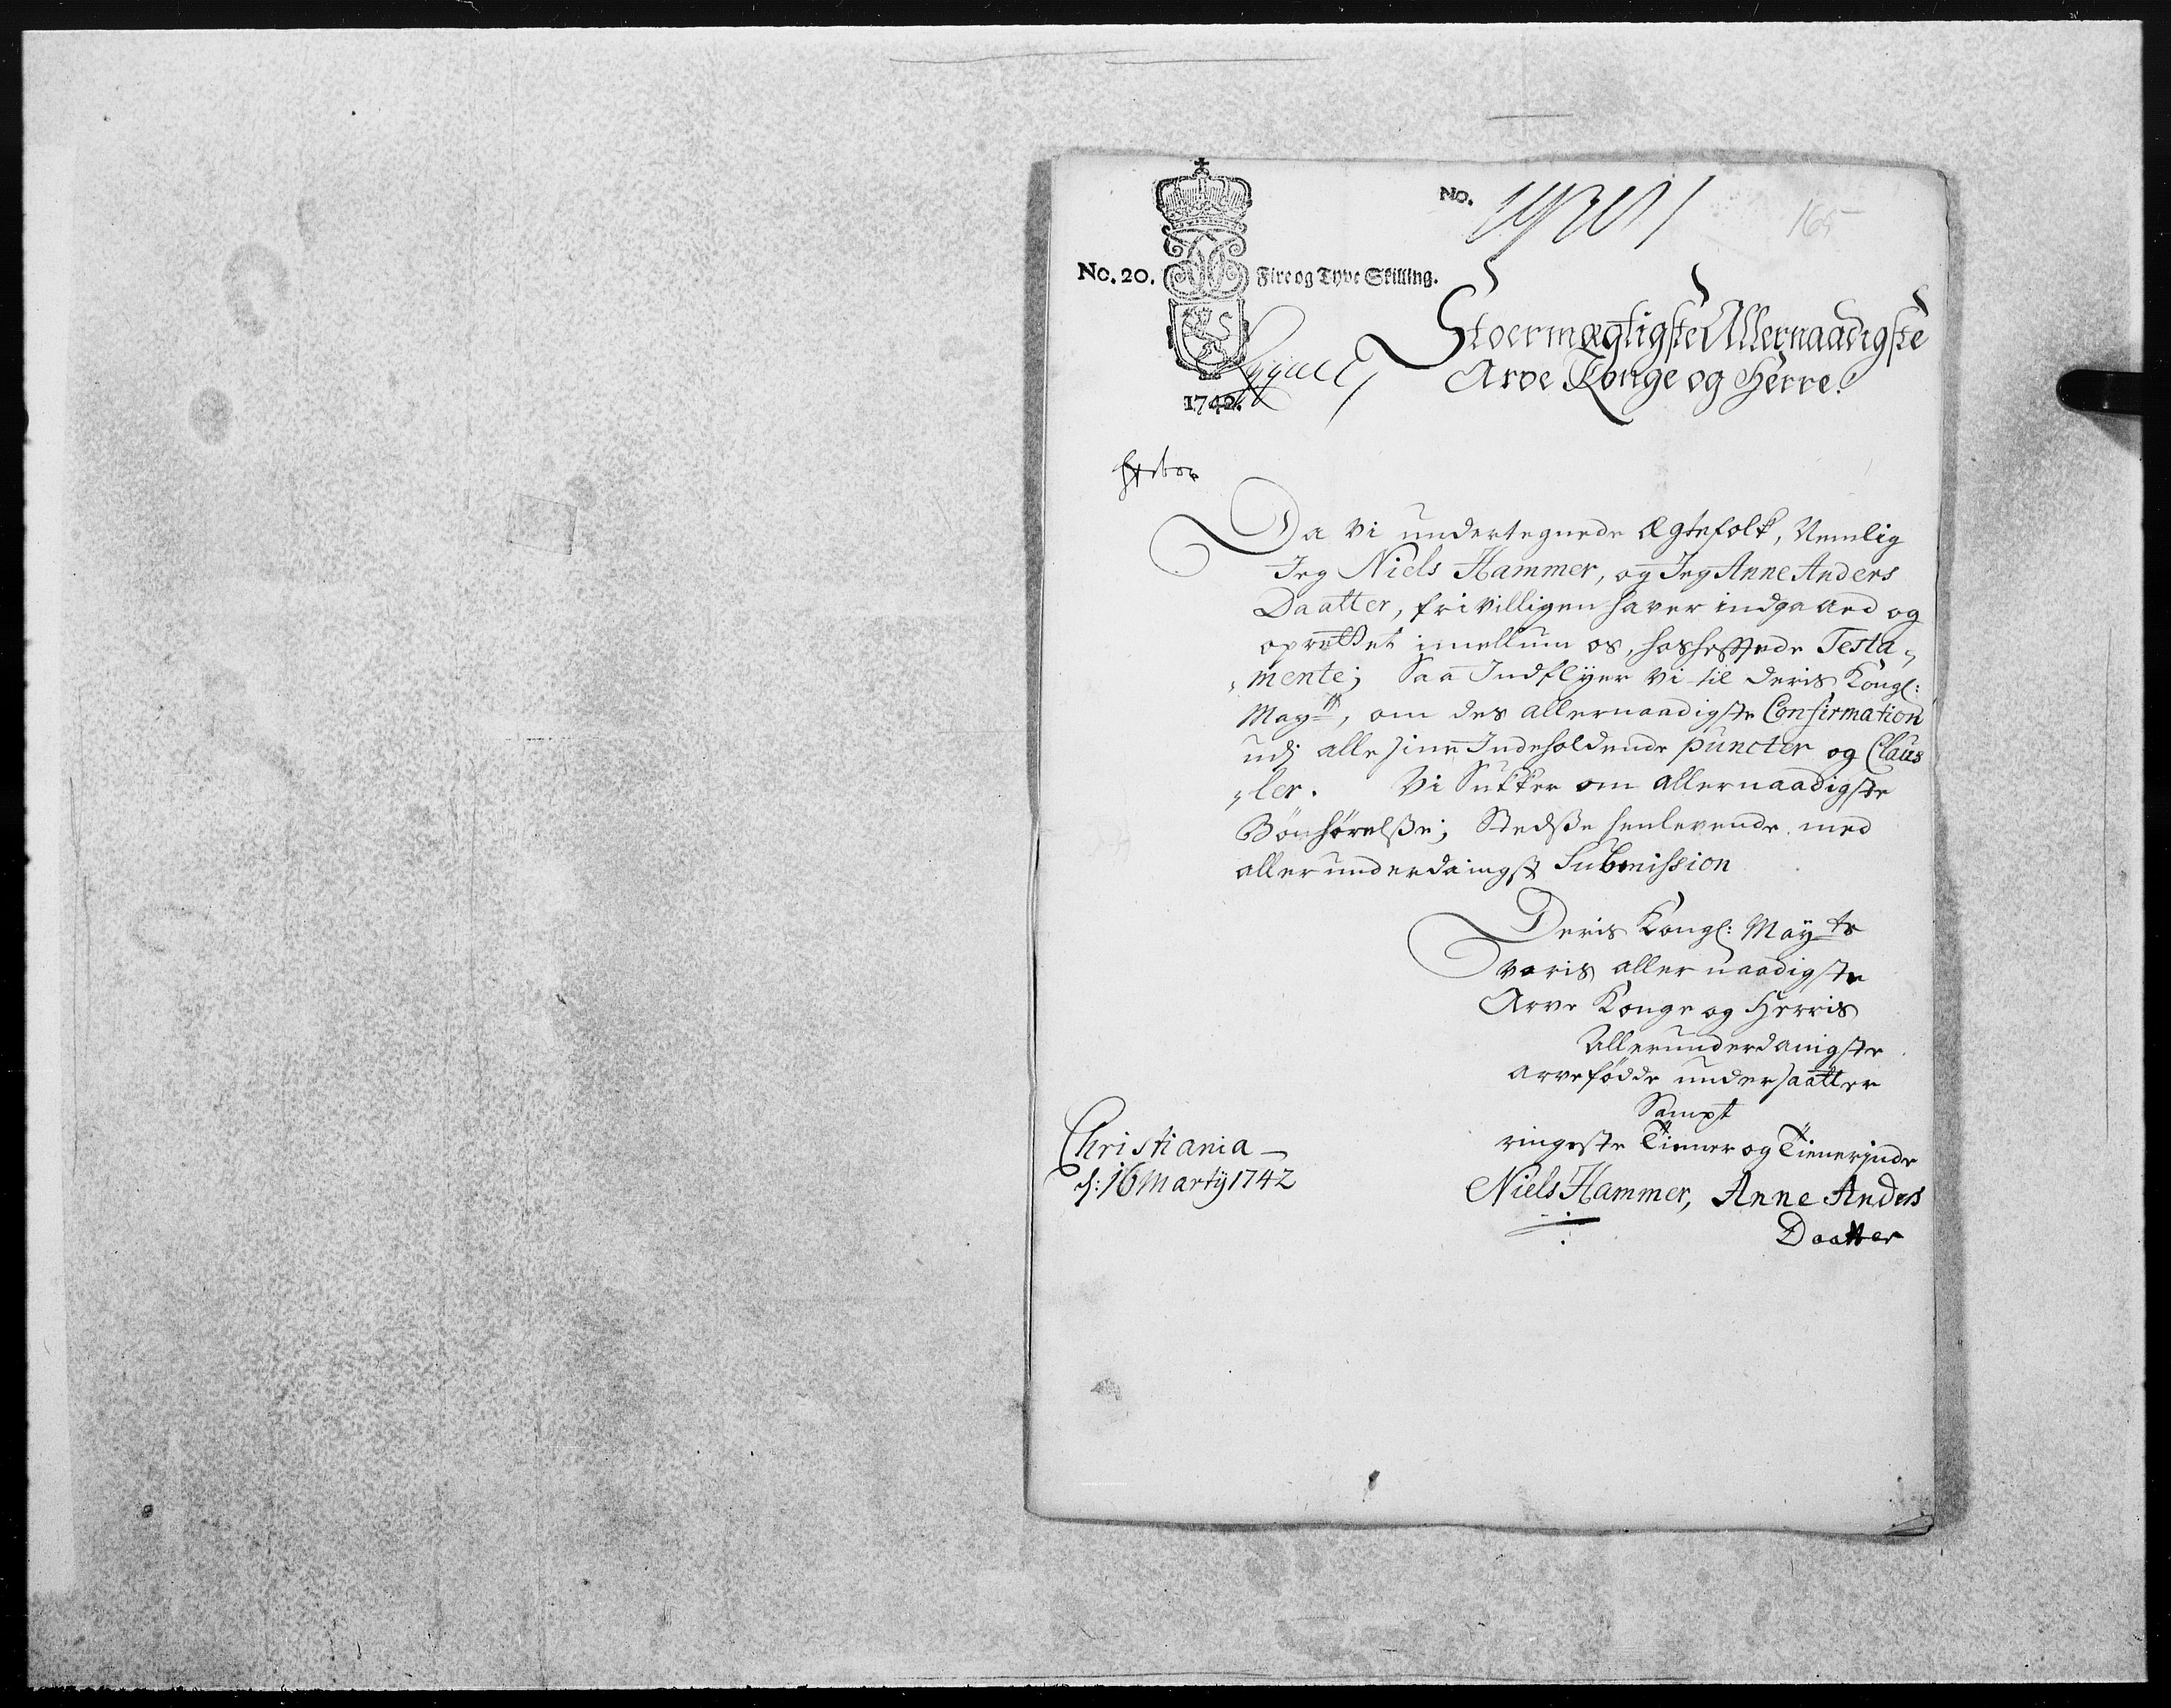 No.
165
No. 20. Fire og Tyve Skilling.
1742.
Stoermægtigste Allernaadigste
Arve Konge og Herre.
Da vi undertegnede Ægtefolk, Nemlig
Jeg Niels Hammer, og Jeg Anne Anders
Daatter, frivilligen haver indgaaed og
oprettet imellum os, hoshefftede Testa„
„mente; Saa Indflyer vi til Deris Kongl:
Maytt, om des allernaadigste Confirmation
udj alle sine Indeholdende puncter og Claus
„ler. Vi Sukker om allernaadigste
Bönhörelsse; Stedsse henlevende med
allerunderdaingst Submission
Deris Kongl: Mayts
voris allernaadigste
Arve Konge og Herris
Allerunderdanigste
arvefödde undersaatter
Sampt
ringeste Tiener og Tienerinde
Christiania
d: 16 Martij 1742
Niels Hammer, Anne Anders
Daatter